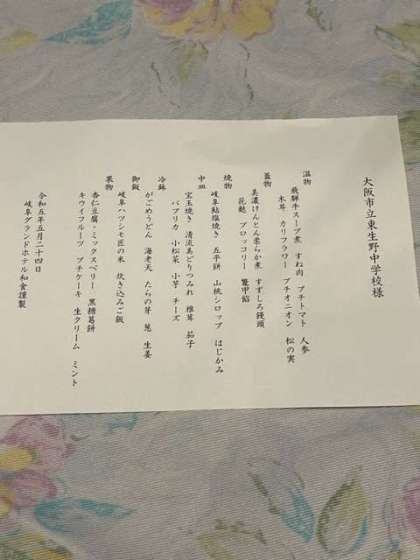 大阪市立東生野中学校様
温物
飛騨牛スープ煮 すね肉 プチトマト 人参
木耳 カリフラワー プチオニオン 松の実
蓋物
美濃けんとん柔らか煮 すずしろ饅頭
花麩 ブロッコリー 鼈甲餡
焼物
岐阜鮎塩焼き 五平餅 山桃シロップ はじかみ
中皿
宝玉焼き 清流美どりつみれ 椎茸 茄子
パプリカ 小松菜 小芋 チーズ
冷鉢
がごめうどん 海老天 たらの芽 葱 生姜
御飯
岐阜ハツシモ匠の米 炊き込みご飯
果物
杏仁豆腐・ミックスベリー 黒糖葛餅
キウイフルーツ プチケーキ 生クリーム ミント
令和五年五月二十四日
岐阜グランドホテル和食謹製